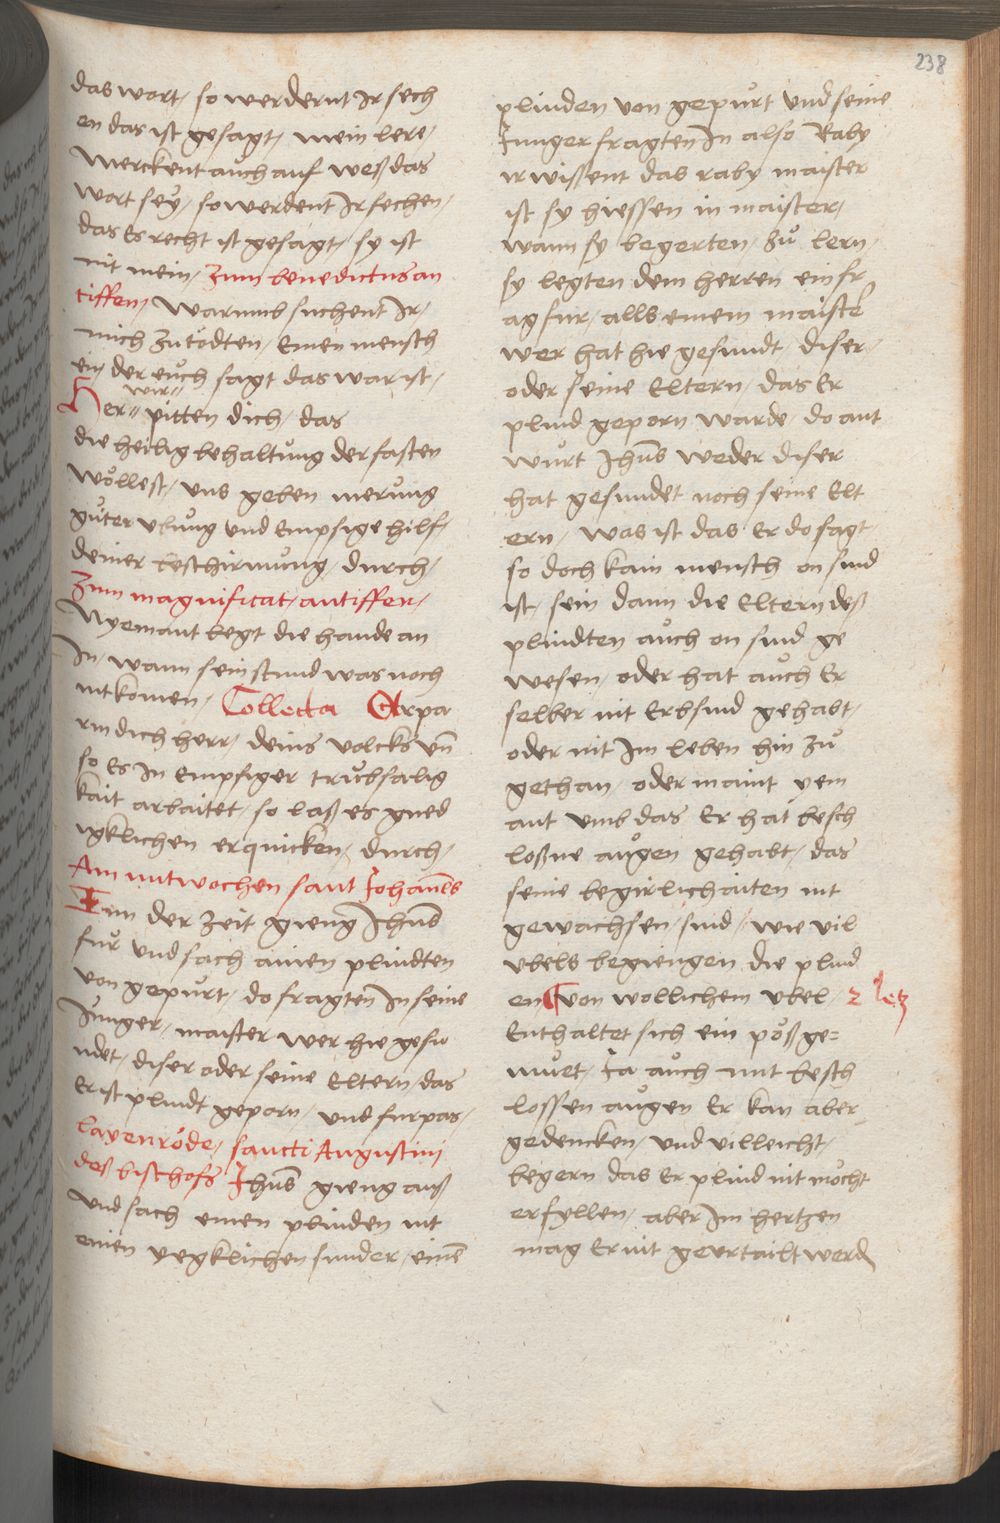 238
das wort, so werdernt Ir sech
en das ist gesagt, mein lere,
Merckent auch auf weß das
wort sey, so werdent Ir sechen,
das Es recht ist gesagt, sy ist
nit mein, Zum benedictus an
tiffen, Warumb suchent Ir,
mich zu tödten, Einen mensch
en der euch sagt das war ist,
Her wir pitten dich, das
die heilig behaltung der fasten
wöllest, uns geben merung
guter ubung und Empsige hilf,
deiner beschirmung, durch,
Zum magnificat, antiffen,
Nyemant legt die hande an
In, wann sein stund was noch
nit komen, Collecta Erpar
m dich herr, deins volcks un̄
so Es in Empsiger trubsalig
kait arbaitet, so laß es gned
igklichen erquicken, durch,
Am mitwochen sant Johannes
Inn der zeit gieng Jhus̄
für und sach ainen plindten
von gepurt, do fragten In seine
Junger, maister wer hie gesu
ndet, diser oder seine Eltern, das
Er ist plindt geporn, und furpas,
Layenröde, sancti Augustini
deß bischofs Jhus̄ gieng auß
und sach einen plinden nit
einen yegklichen sunder, einē
plinden von gepurt und seine
Junger fragten In also Raby
ir wissent das raby maister
ist sy hiessen in maister,
wann sy begerten, zu lern,
sy legten dem herren ein fr
ag fur, alls einem maiste
wer hat hie gesundt, diser,
oder seine Eltern, das Er
plind geporn warde, do ant
wurt Jhus̄ weder diser
hat gesundet noch seine Elt
ern, was ist das Er do sagt,
so doch kain mensch on sund
ist, sein dann die Eltern deß
plindten auch on sund ge
wesen, oder hat auch Er
selber nit Erbsund gehabt,
oder nit Im leben hin zu
gethan, oder maint yem
ant umb das Er hat besch
loßne augen gehabt, das
seine begirlichaiten nit
gewachsen sind, wie vil
ubels begiengen die plind
en Von wöllichem ubel, 2 letz
Enthaltet sich ein pöß ge=
muet, Ja auch mit besch
lossen augen Er kan aber
gedencken, und villeicht,
begern das Er plind nit möcht
erfyllen, aber Im hertzen
mag Er nit geurtailt werd